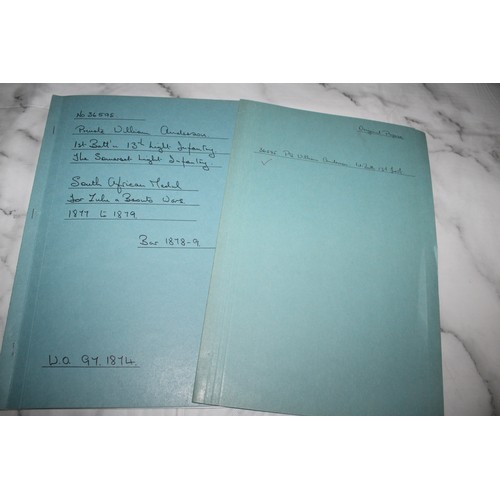 No 36595
Private William Anderson
1st Batt'n 13th Light Infantry
The Somerset Light Infantry
South African Medal
For Zulu & Basuto Wars
1877 to 1879
Bar 1878-9
W.O. 97. 1874.
Original Papers
Pte William Anderson 1st Batt